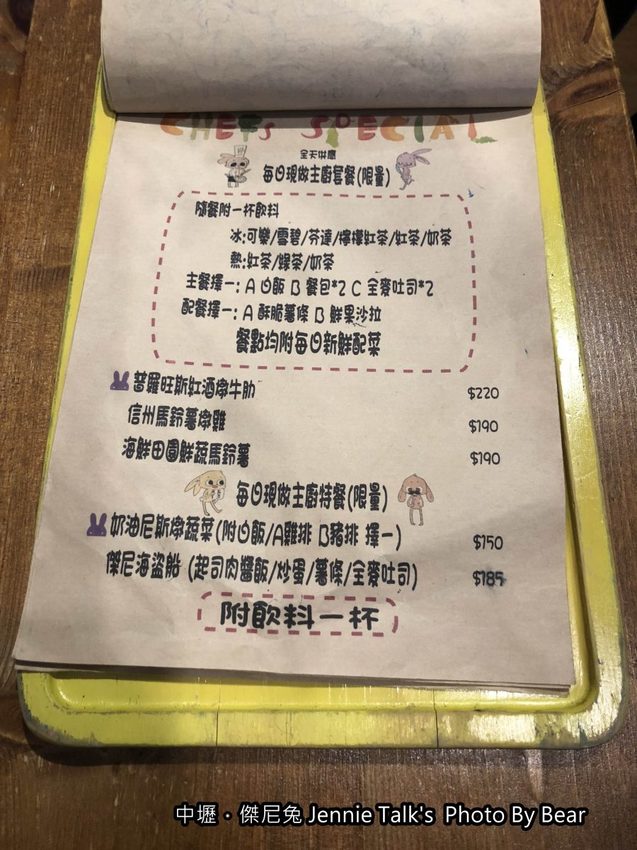 CHEFs SPECIAL
全天供應
每日現做主廚套餐(限量)
隨餐附一杯飲料
冰:可樂/雪碧/芬達/檸檬紅茶/紅茶/奶茶
熱:紅茶/綠茶/奶茶
主餐擇一: A 白飯 B 餐包*2 C 全麥吐司*2
配餐擇一: A 酥脆薯條 B 鮮果沙拉
餐點均附每日新鮮配菜
普羅旺斯紅酒燉牛肋 $220
信州馬鈴薯燉雞 $190
海鮮田園鮮蔬馬鈴薯 $190
每日現做主廚特餐(限量)
奶油尼斯燉蔬菜(附白飯/A雞排 B豬排 擇一) $150
傑尼海盜船 (起司肉醬飯/炒蛋/薯條/全麥吐司) $185
附飲料一杯
中壢・傑尼兔 Jennie Talk's Photo By Bear